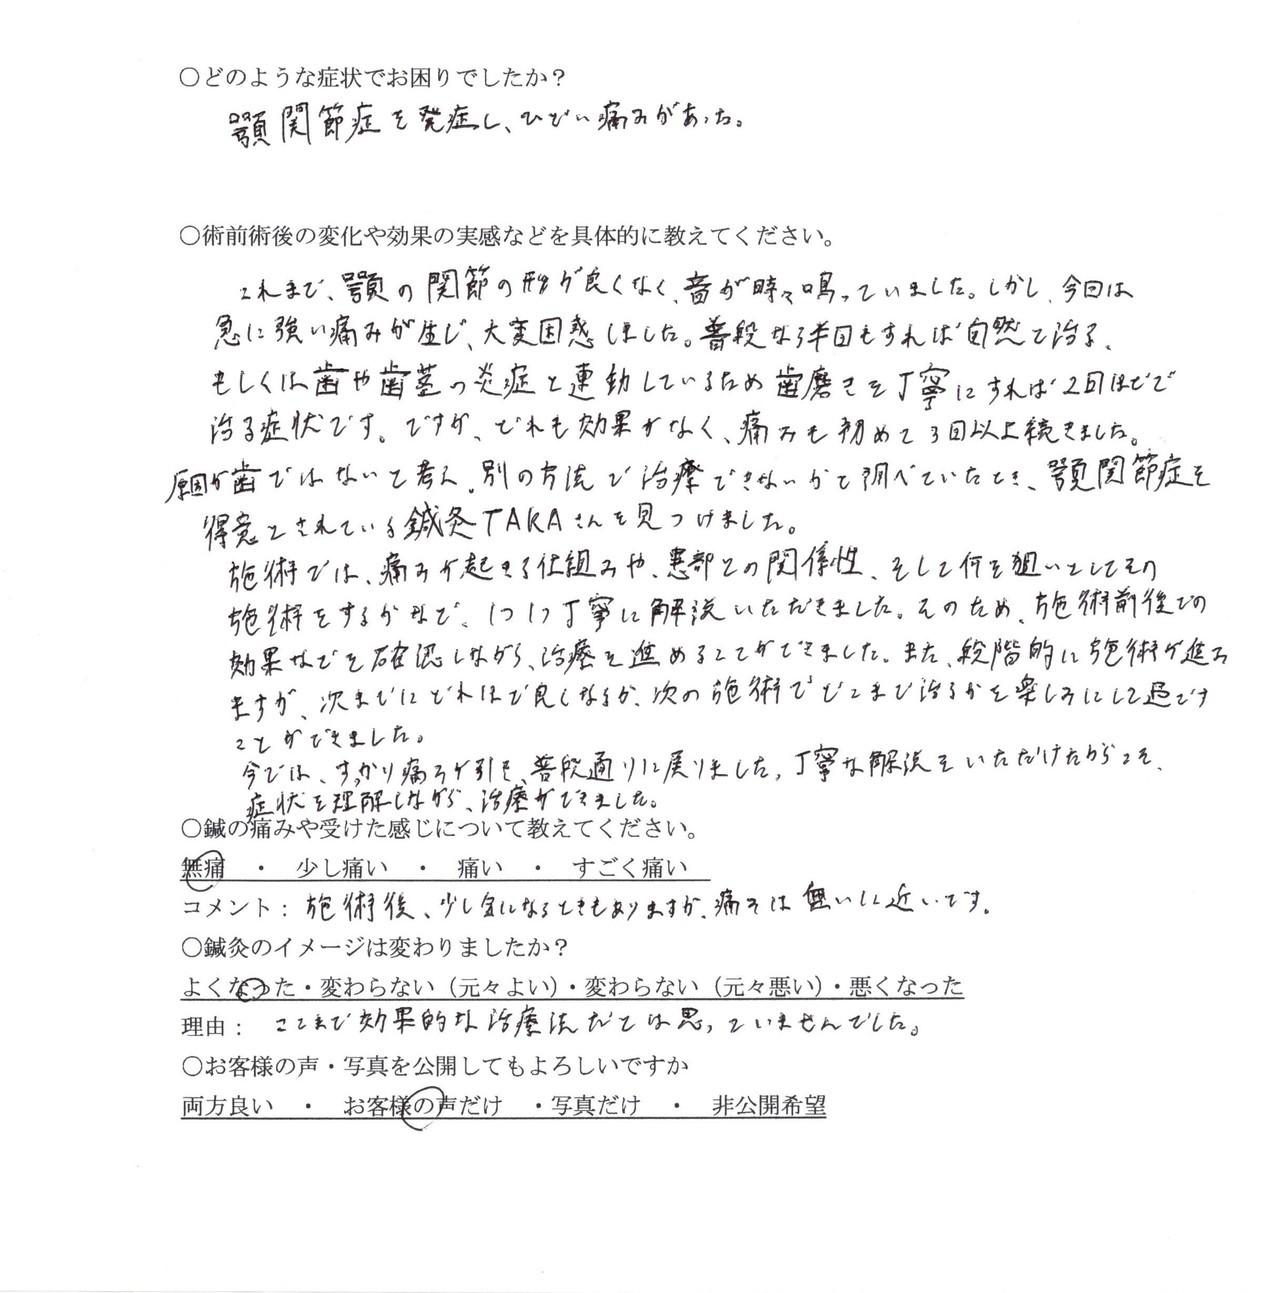 ○どのような症状でお困りでしたか？
顎関節症を発症し、ひどい痛みがあった。
○術前術後の変化や効果の実感などを具体的に教えてください。
これまで、顎の関節の形が良くなく、音が時々鳴っていました。しかし、今回は
急に強い痛みが生じ、大変困惑しました。普段なら半日もすれば自然と治る、
もしくは歯や歯茎の炎症と連動しているため歯磨きを丁寧にすれば2日ほどで
治る症状です。ですが、どれも効果がなく、痛みも初めて3日以上続きました。
原因が歯ではないと考え、別の方法で治療できないかと調べていたとき、顎関節症を
得意とされている鍼灸TAKAさんを見つけました。
施術では、痛みが起きる仕組みや、患部との関係性、そして何を狙いとしてその
施術をするかなど、1つ1つ丁寧に解説いただきました。そのため、施術前後での
効果などを確認しながら、治療を進めることができました。また、段階的に施術が進み
ますが、次までにどれほど良くなるか、次の施術でどこまで治るかを楽しみにして過ごす
ことができました。
今では、すっかり痛みが引き、普段通りに戻りました。丁寧な解説をいただけたからこそ、
症状を理解しながら、治療ができました。
○鍼の痛みや受けた感じについて教えてください。
無痛　・　少し痛い　・　痛い　・　すごく痛い
コメント： 施術後、少し気になるときもありますが、痛みは無いに近いです。
○鍼灸のイメージは変わりましたか？
よくなった・変わらない（元々よい）・変わらない（元々悪い）・悪くなった
理由： ここまで効果的な治療法だとは思っていませんでした。
○お客様の声・写真を公開してもよろしいですか
両方良い　・　お客様の声だけ　・写真だけ　・　非公開希望